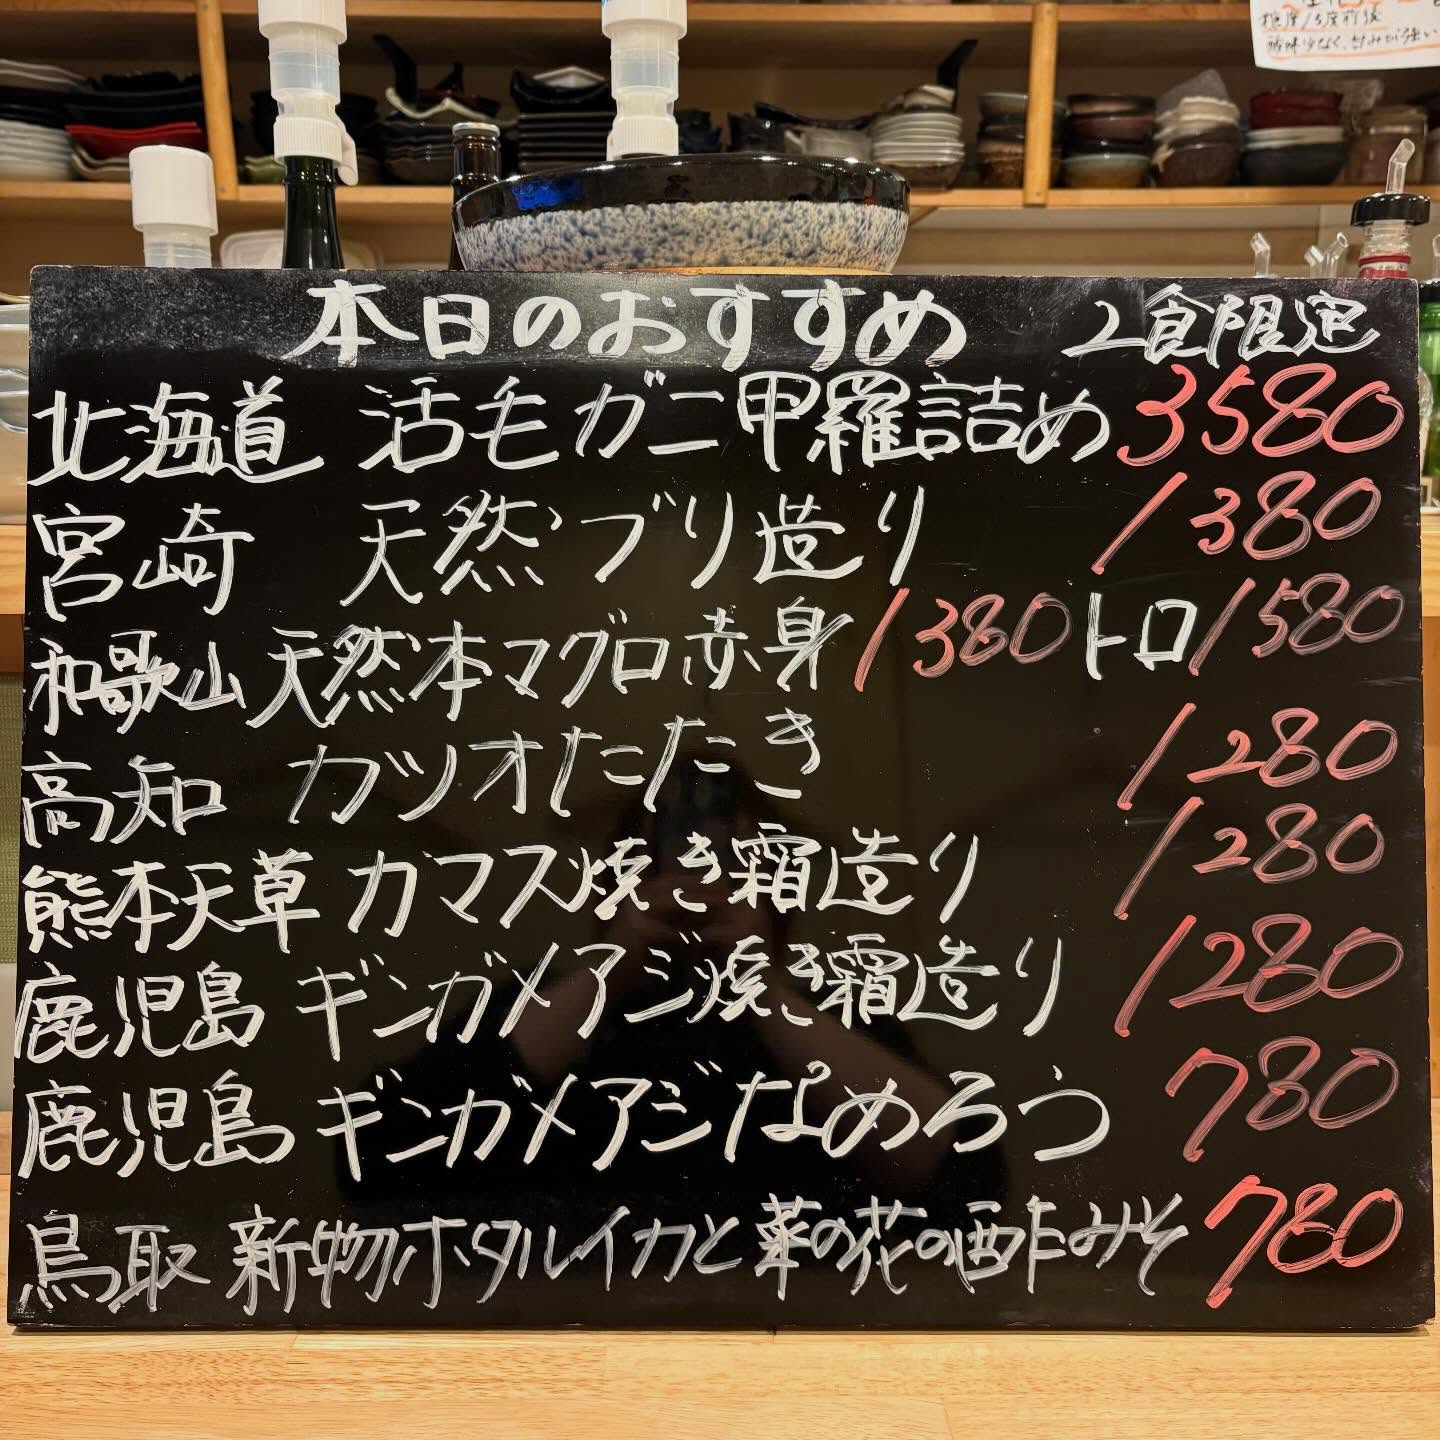 糖度15度前後
酸味少なく、甘みが強い
本日のおすすめ 2食限定
北海道 活毛ガニ甲羅詰め 3580
宮崎 天然ブリ造り 1380
和歌山 天然本マグロ赤身 1380 トロ 1580
高知 カツオたたき 1280
熊本天草 カマス焼き霜造り 1280
鹿児島 ギンガメアジ焼き霜造り 1280
鹿児島 ギンガメアジなめろう 780
鳥取 新物ホタルイカと菜の花の酉乍みそ 780